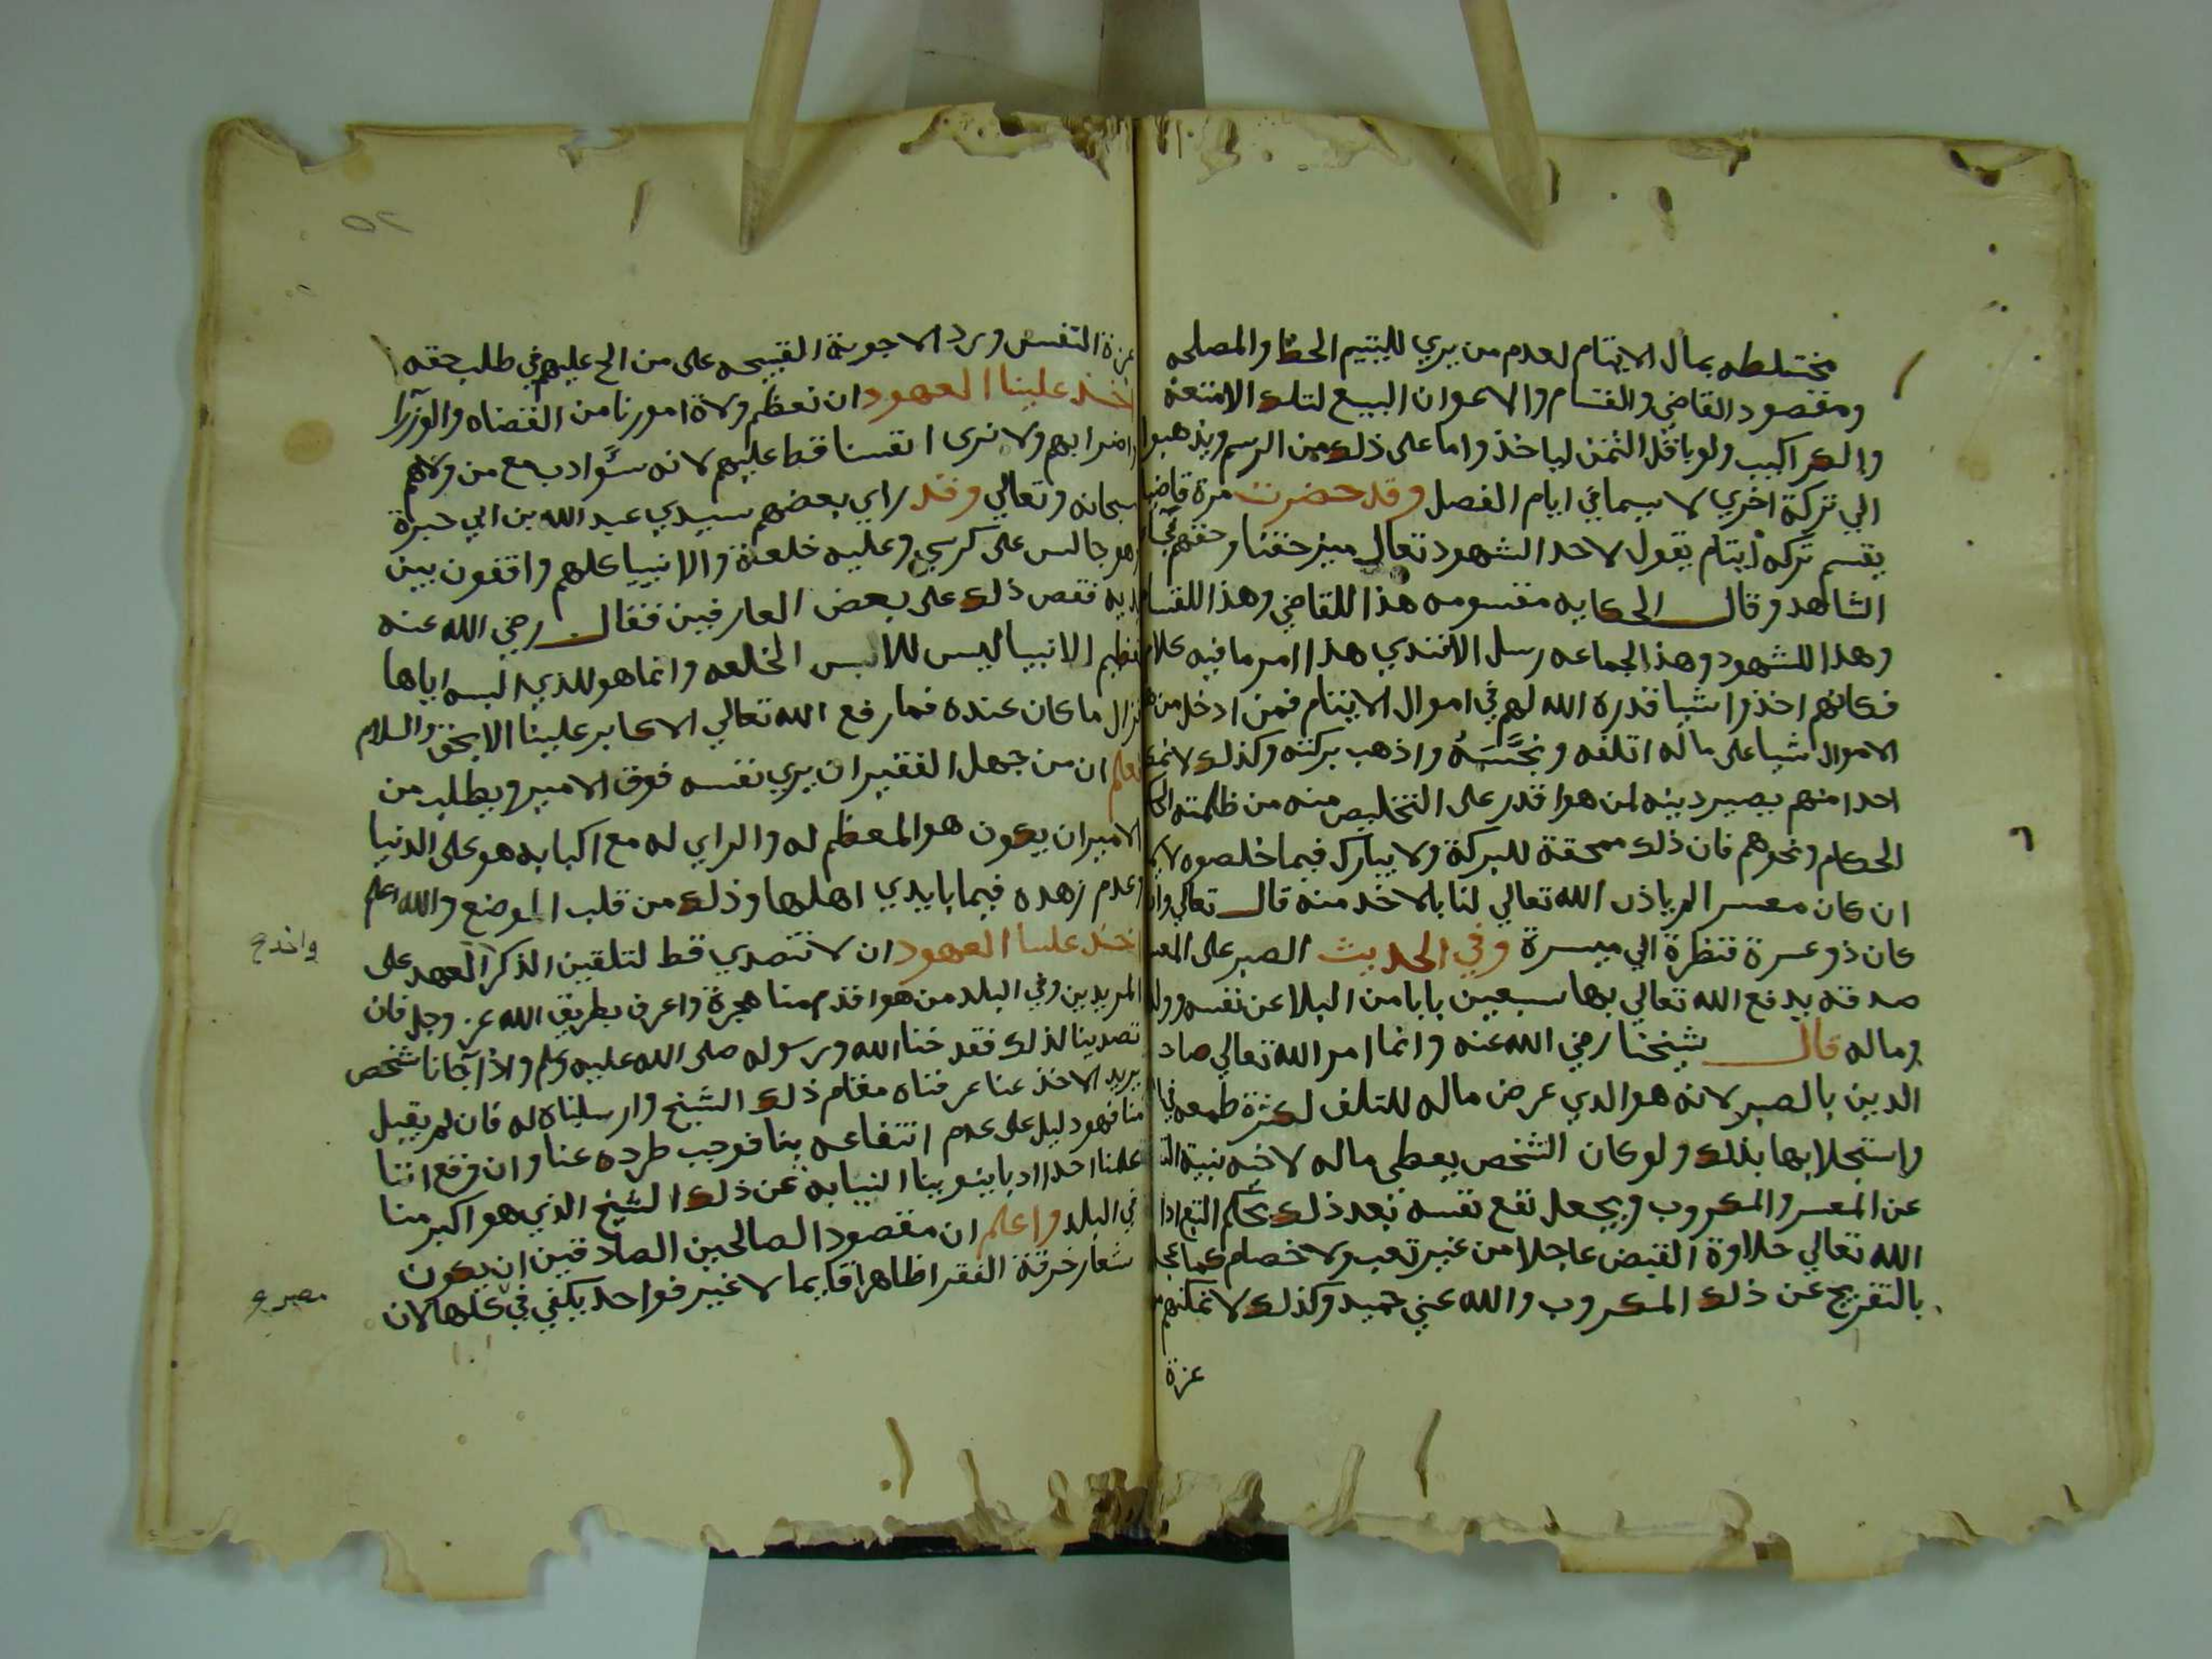 مختلطه بمال الايتام لعدم من يري لليتيم الحظ والمصلحه
ومقصود القاضي والقسام والاعوان البيع لتلك الامتعة
والكراكيب ولو باقل الثمن لياخذ واما على ذلك من الرسم ويذهبوا
الي تركة اخري لا سيما في ايام الفصل وقد حضرت مرة قاضيا
يقسم تركه ايتام يقول لاحد الشهود تعالي ميز حقنا وحقهم
الشاهد وقال الحكايه مقسومه هذا للقاضي وهذا للقسام
وهذا للشهود وهذا لجماعه رسل الافندي هذا امر ما فيه كلام
فكانهم اخذوا شيا قدره الله لهم في اموال الايتام فمن ادخل من
الاموال شيا على ماله اتلفه ونجسه واذهب بركته وكذلك لا
احدا منهم يصير دينه لمن هو اقدر على التخليص منه من ظلمته
الحكام ونحوهم فان ذلك ممحقة للبركة ولا يبارك فيما خلصوه
ان كان معسر الم ياذن الله تعالي لنا بالاخذ منه قال تعالي وان
كان ذو عسرة فنظرة الي ميسرة وفي الحديث الصبر على المعسر
صدقه يدفع الله تعالي بها سبعين بابا من البلا عن نفسه وولده
وماله قال شيخنا رضي الله عنه وانما امر الله تعالي صاحب
الدين بالصبر لانه هو الدي عرض ماله للتلف لكثرة طمعه في
واستجلابها بذلك ولو كان الشخص يعطي ماله لاخيه بنية
عن المعسر والمكروب ويجعل نفع نفسه بعد ذلك بحكم التبع
الله تعالي حلاوة القبض عاجلا من غير تعب ولا خصام كما عجل
بالتفريج عن ذلك المكروب والله غني حميد وكذلك لا نمكنهم
عزة
عزة النفس ويرد الاجوبة القبيحه على من الح عليهم في طلب حقه
اخذ علينا العهود ان نعظم ولاة امورنا من القضاه والوزرا
واضرابهم ولا نرى انفسنا قط عليهم لانه سؤ ادب مع من ولاهم
سبحانه وتعالي وقد راي بعضهم سيدي عبد الله بن ابي حبرة
وهو جالس على كرسي وعليه خلعة والانبيا كلهم واقفون بين
يديه فقص ذلك على بعض العارفين فقال رضي الله عنه
تعظيم الانبيا ليس للابس الخلعه وانما هو للذي البسه اياها
ما كان عنده فما رفع الله تعالي الاكابر علينا الا بحق والسلام
ان من جهل الفقير ان يري نفسه فوق الامير ويطلب من
الامير ان يكون هو المعظم له والراي له مع اكبابه هو على الدنيا
وعدم زهده فيما بايدي اهلها وذلك من قلب الموضع والله اعلم
اخذ علينا العهود ان لا نتصدي قط لتلقين الذكر العهد على
واخذ ع
المريدين وفي البلد من هو اقدم منا هجرة واعرف بطريق الله عز وجل فان
تصدينا لذلك فقد خنا الله ورسوله صلى الله عليه وسلم واذا جانا شخص
يريد الاخذ عنا عرفناه مقام ذلك الشيخ وارسلناه له فان لم يقبل
منا فهو دليل على عدم انتفاعه بنا فوجب طرده عنا وان وقع اننا
علمنا احدا ادبا ينوبنا النيابة عن ذلك الشيخ الذي هو اكبر منا
في البلد واعلم ان مقصود الصالحين الصادقين ان يكون
شعار خرقة الفقر اظاهرا قايما لا غير فواحد يكفي في كلها لان